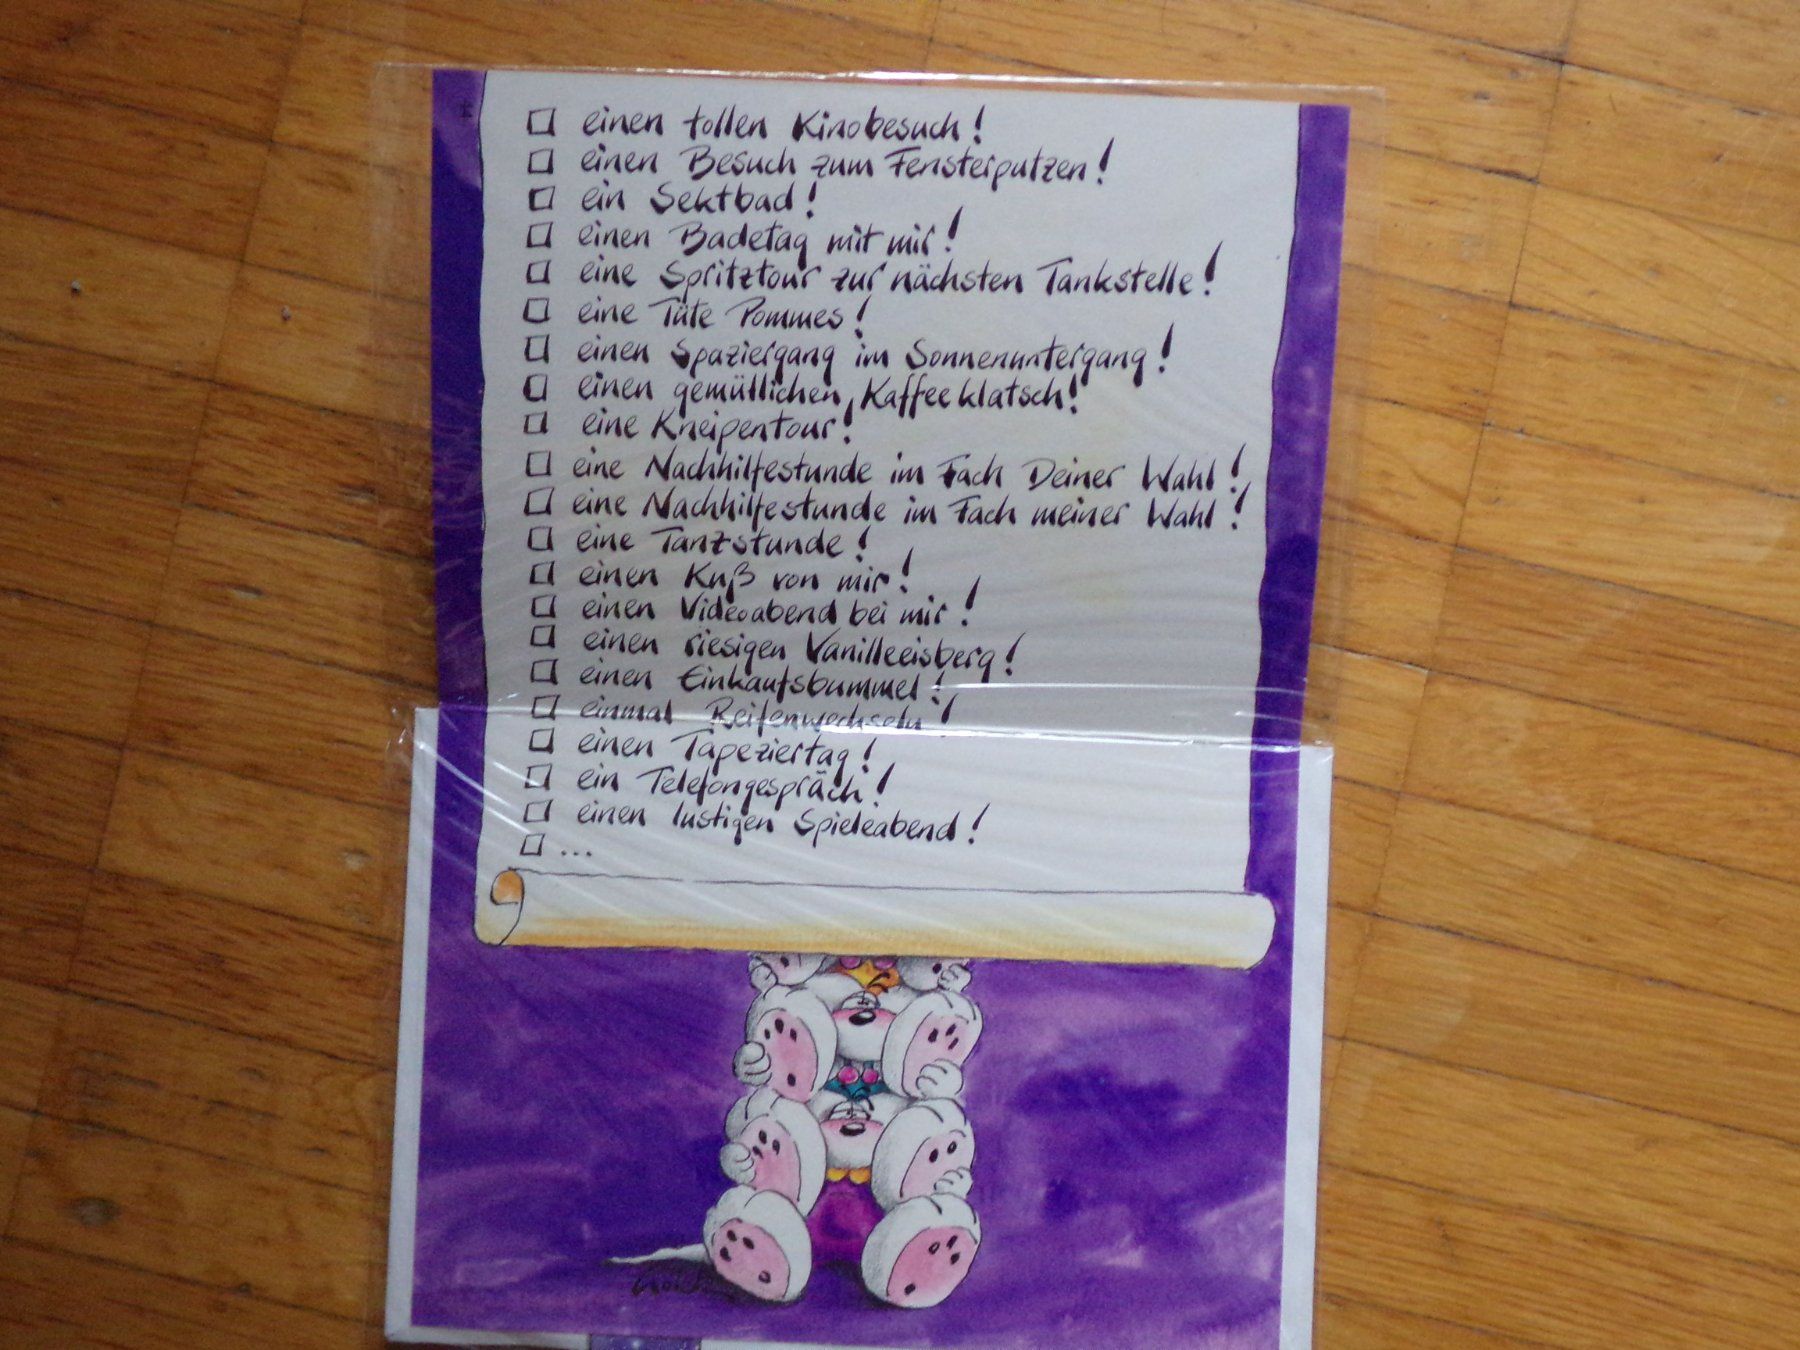 einen tollen Kinobesuch!
einen Besuch zum Fensterputzen!
ein Sektbad!
einen Badetag mit mir!
eine Spritztour zur nächsten Tankstelle!
eine Tüte Pommes!
einen Spaziergang im Sonnenuntergang!
einen gemütlichen Kaffeeklatsch!
eine Kneipentour!
eine Nachhilfestunde im Fach Deiner Wahl!
eine Nachhilfestunde im Fach meiner Wahl!
eine Tanzstunde!
einen Kuß von mir!
einen Videoabend bei mir!
einen riesigen Vanilleeisberg!
einen Einkaufsbummel!
einmal Reifenwechseln!
einen Tapeziertag!
ein Telefongespräch!
einen lustigen Spieleabend!
...